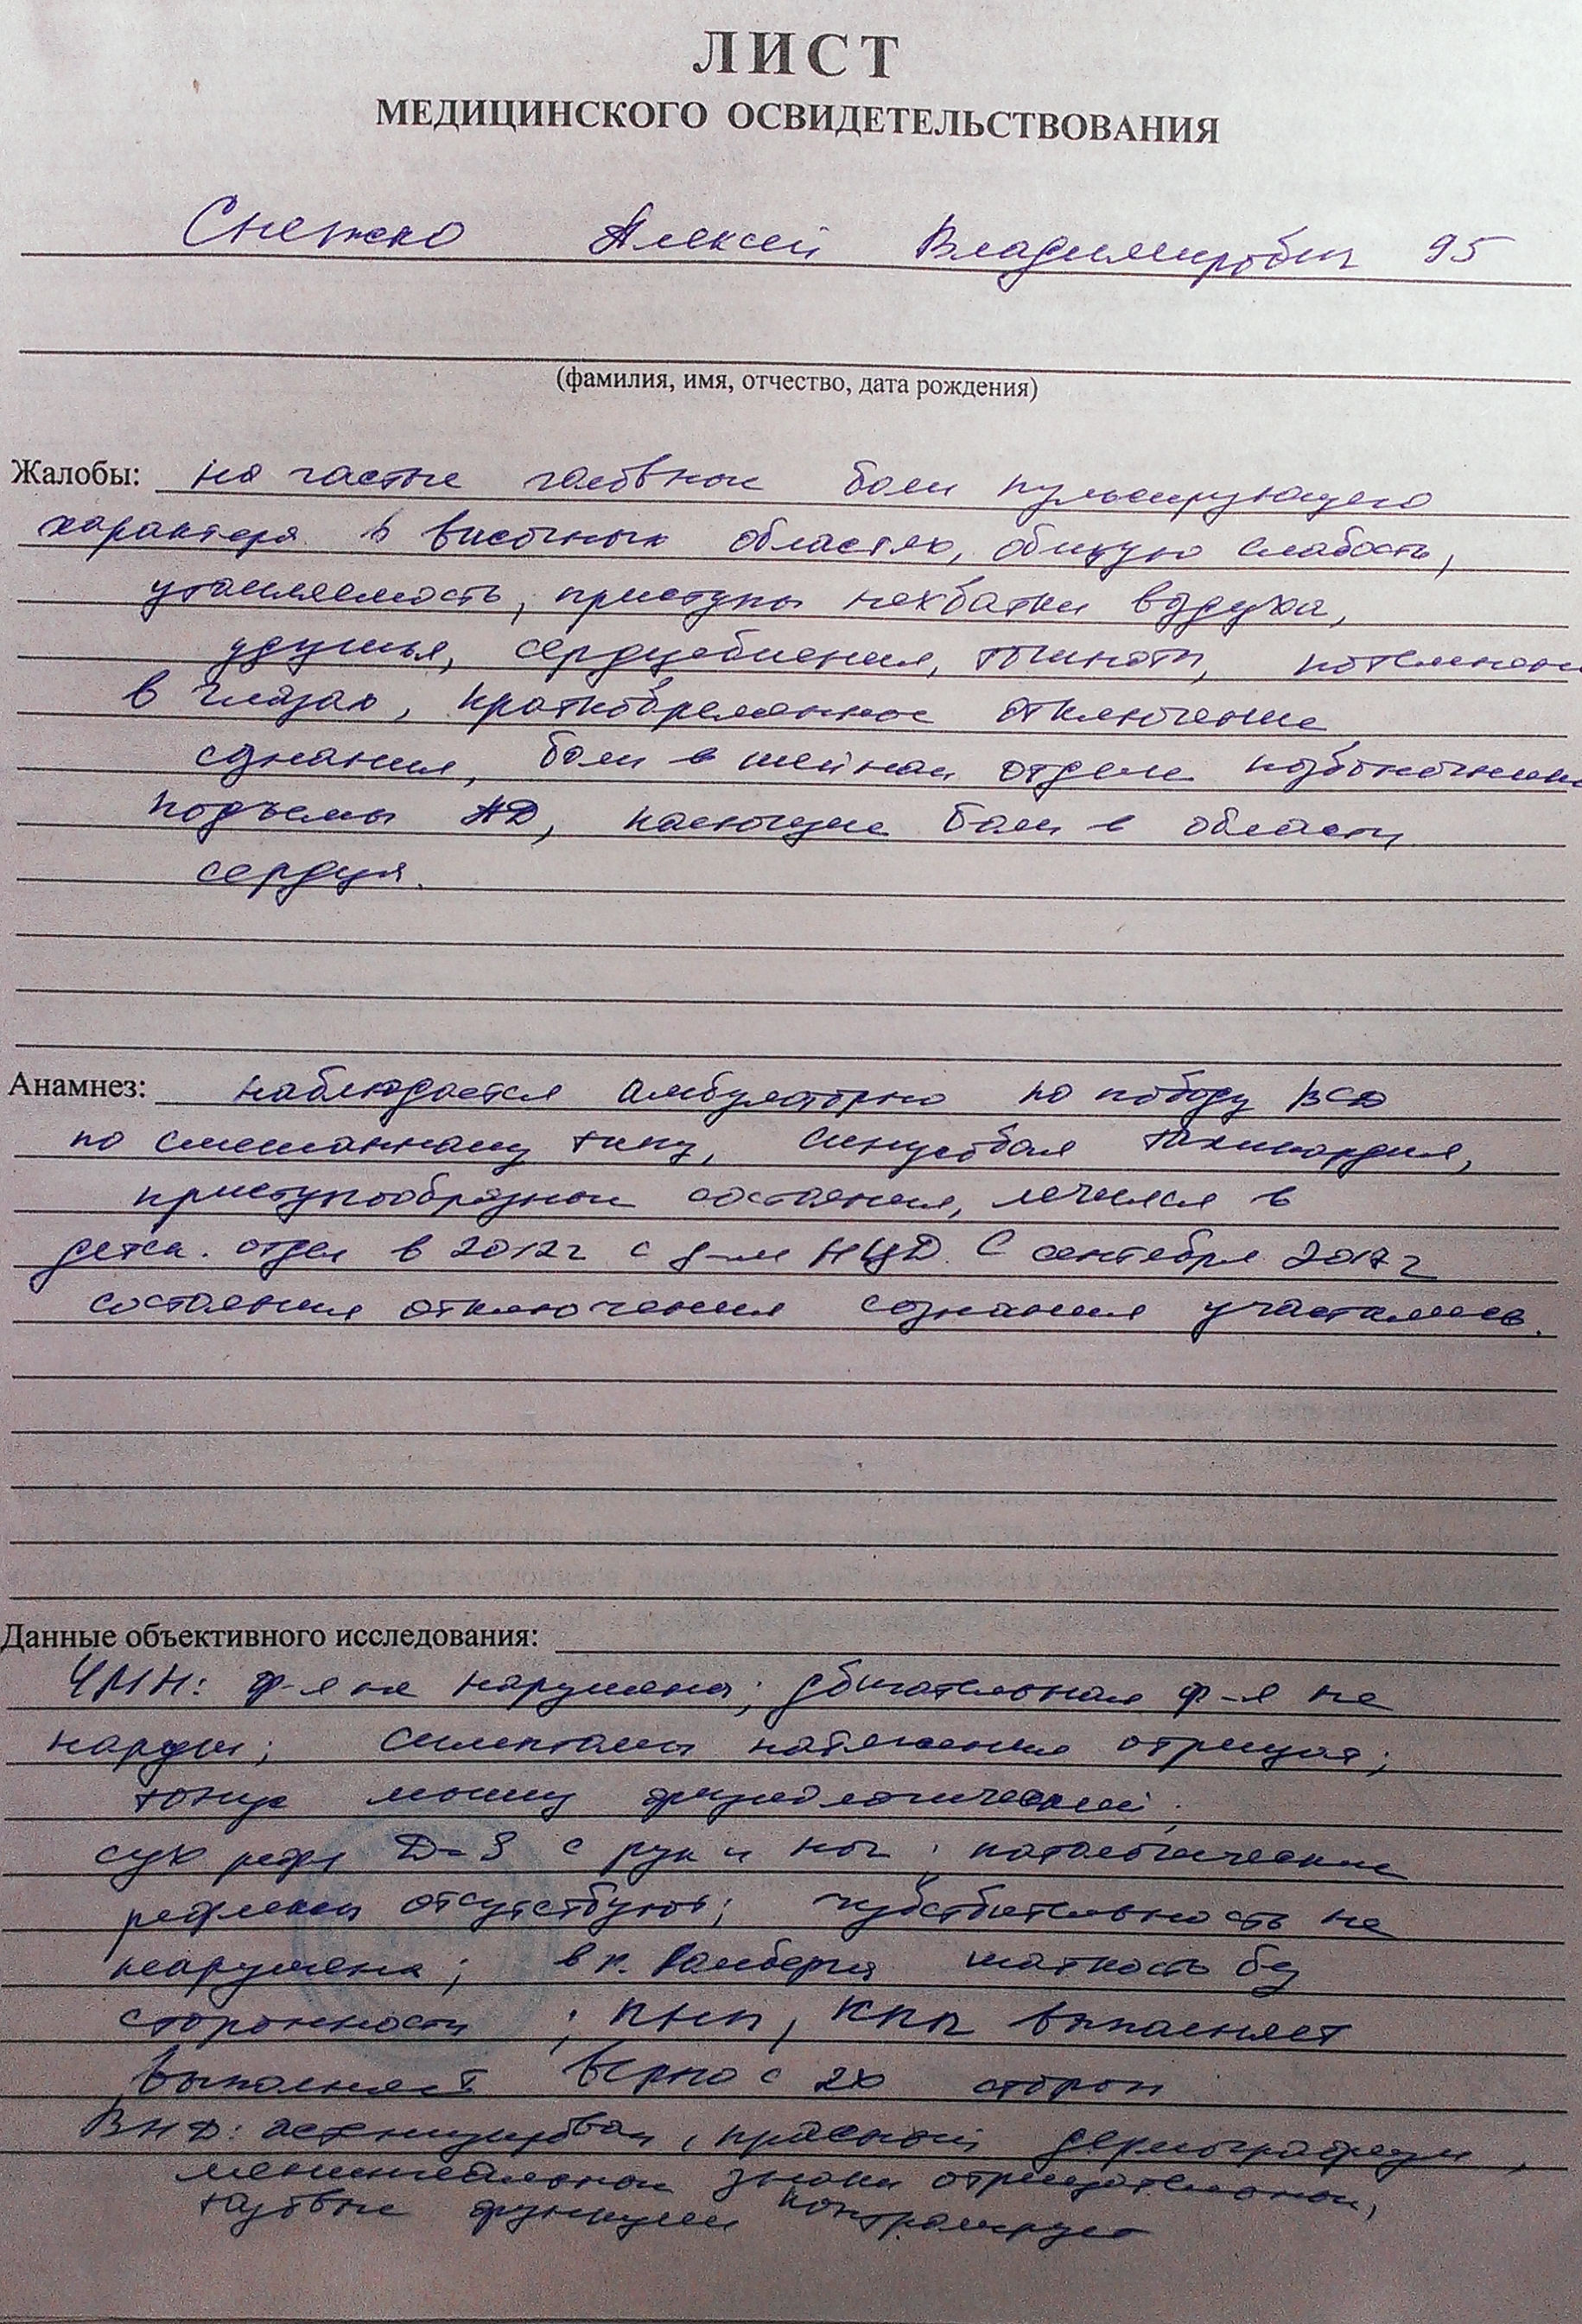 ЛИСТ
МЕДИЦИНСКОГО ОСВИДЕТЕЛЬСТВОВАНИЯ
Снежко Алексей Владимирович 95
(фамилия, имя, отчество, дата рождения)
Жалобы: на частые головные боли пульсирующего
характера в височных областях, общую слабость,
утомляемость, приступы нехватки воздуха,
удушья, сердцебиения, тошноты, потемнения
в глазах, кратковременное отключение
сознания, боли в шейном отделе позвоночника
подъемы АД, ноющие боли в области
сердца.
Анамнез: наблюдается амбулаторно по поводу ВСД
по смешанному типу, синусовая тахикардия,
приступообразные состояния, лечился в
детск. отдел в 2012г с д-м НЦД. С сентября
состояния отключения сознания участились.
Данные объективного исследования:
ЧМН: ф-я не нарушена; двигательная ф-я не
симптомы натяжения отрицат;
тонус мышц физиологический;
сух рефл D=S с рук и ног; патологические
рефлексы отсутствуют; чувствительность не
нарушена; в п. Ромберга шаткость без
сторонности; ПНП, КПП выполняет
выполняет верно с 2х сторон
ВНД: астенизирован, красный дермографизм,
менингеальные знаки отрицательные,
тазовые функции контролирует